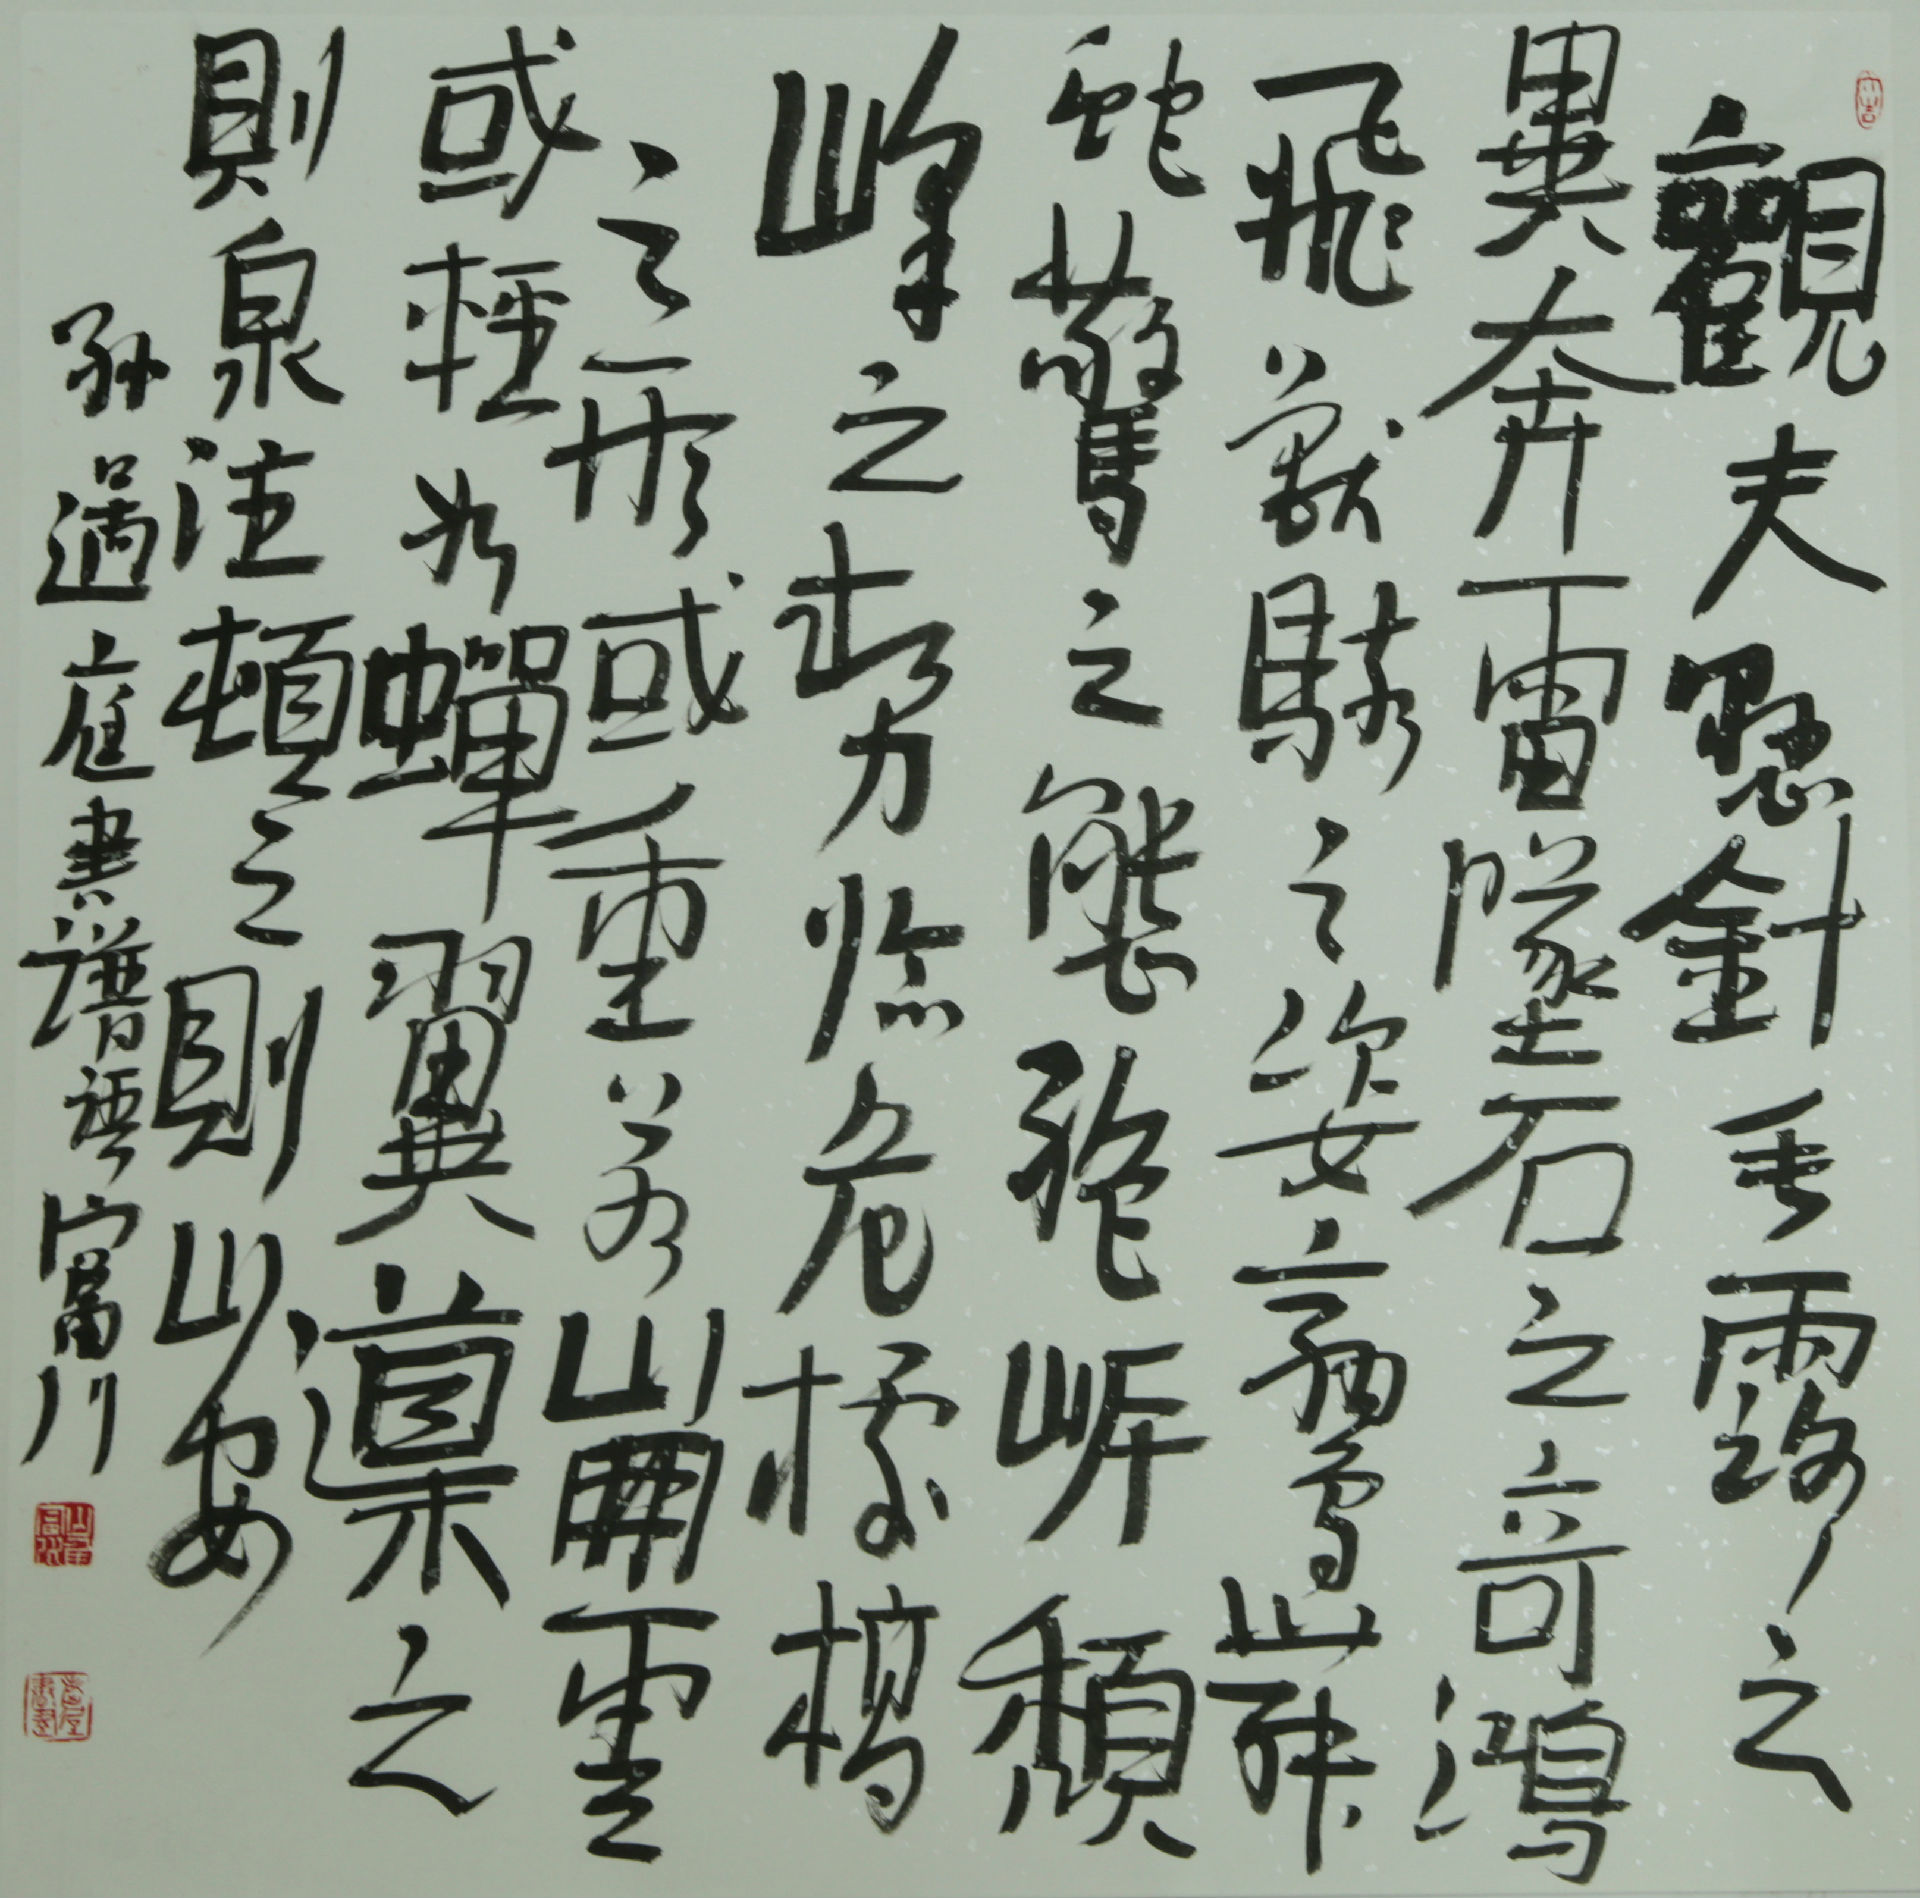 觀夫懸針垂露之
異奔雷墜石之奇鴻
飛獸駭之姿鸞舞
蛇驚之態絕岸頹
峰之勢臨危據槁
之形或重若崩雲
或輕如蟬翼導之
則泉注頓之則山安
孫過庭書譜語富川